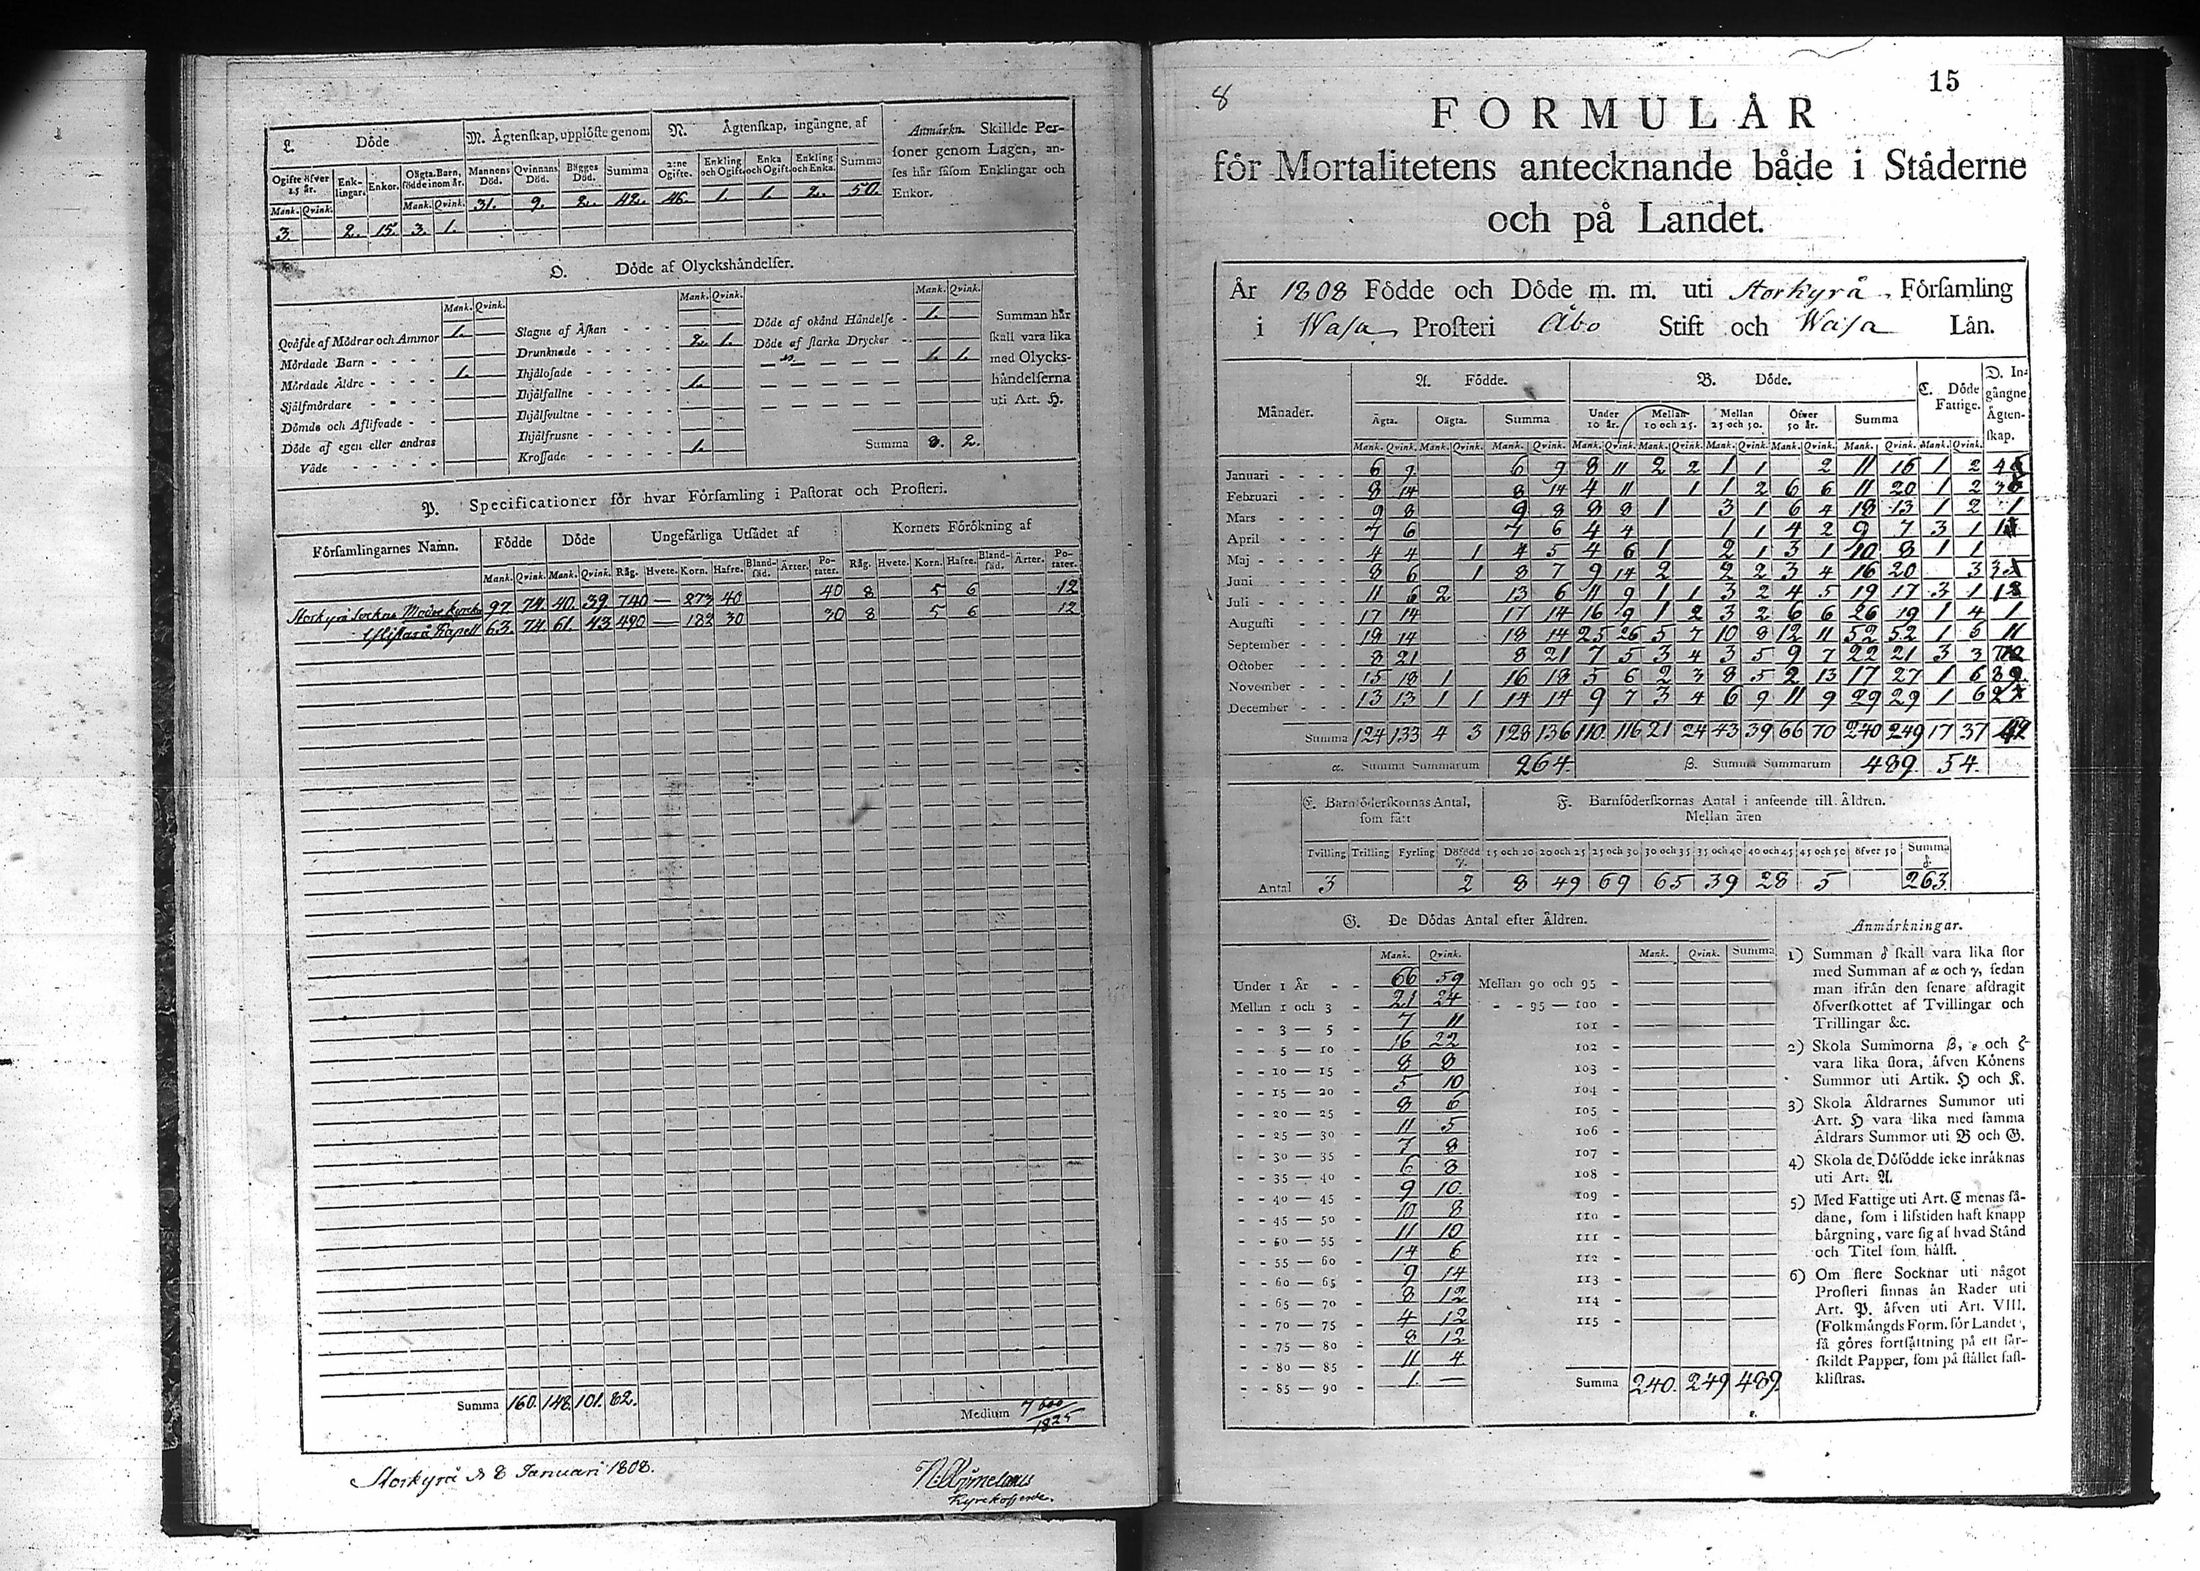 L. Döde
M. Ågtenskap, upplöste genom
N. Ågtenskap, ingångne, af
Anmårkn. Skillde Per-
soner genom Lagen, an-
ses hår såsom Enklingar och
Enkor.
Ogifte öfver 15 år. Enk-lingar. Enkor. Oågta Barn, födde inom år. Mannens Död. Qvinnans Död. Bägges Död. Summa 2:ne Ogifte. Enkling och Ogift. Enka och Ogift. Enkling och Enka. Summa
Mank. Qvink. Mank. Qvink. 31. 9. 2. 42. 46. 1. 1. 2. 50.
3. 2. 15. 3. 1.
O. Döde af Olyckshåndelser.
Mank. Qvink. Mank. Qvink. Mank. Qvink.
Qväfde af Mödrar och Ammor 1.
Mördade Barn - - - -
Mördade Åldre - - - - 1.
Sjålfmördare - - - -
Dömde och Aflifvade - -
Döde af egen eller andras
Våde - - - - -
Slagne af Åskan - - -
Drunknade - - - - - 2. 1.
Ihjålosade - - - - -
Ihjålfallne - - - - - 1.
Ihjålsvultne - - - - -
Ihjålfrusne - - - - -
Krossade - - - - - 1.
Döde af okånd Håndelse - 1.
Döde af starka Drycker -
1. 1.
Summa 8. 2.
Summan hår
skall vara lika
med Olycks-
håndelserna
uti Art. H.
P. Specificationer för hvar Församling i Pastorat och Prosteri.
Församlingarnes Namn. Födde Döde Ungefårliga Utsådet af Kornets Förökning af
Mank. Qvink. Mank. Qvink. Råg. Hvete. Korn. Hafre. Bland-såd. Årter. Po-tater. Råg. Hvete. Korn. Hafre. Bland-såd. Årter. Po-tater.
Storkyrå Sockne Moderkyrka 97. 74. 40. 39. 740 — 273 40 40 8 5 6 12
Kapell 63. 74. 61. 43. 490 — 182 30 30 8 5 6 12
Summa 160. 148. 101. 82.
Medium
Storkyrå d. 8 Januari 1808.
Kyrkoherde.
8
15
FORMULÅR
för Mortalitetens antecknande både i Ståderne
och på Landet.
År 1808 Födde och Döde m. m. uti Storkyrå Församling
i Wasa Prosteri Åbo Stift och Wasa Lån.
Månader. A. Födde. B. Döde. C. Döde Fattige. D. In-gångne Ågten-skap.
Ågta. Oågta. Summa Under 10 år. Mellan 10 och 25. Mellan 25 och 50. Öfver 50 år. Summa
Mank. Qvink. Mank. Qvink. Mank. Qvink. Mank. Qvink. Mank. Qvink. Mank. Qvink. Mank. Qvink. Mank. Qvink. Mank. Qvink.
Januari - - - - 6 9 6 9 8 11 2 2 1 1 2 11 16 1 2
Februari - - - 8 14 8 14 4 11 1 1 2 6 6 11 20 1 2
Mars - - - - 9 8 9 8 8 8 1 3 1 6 4 18 13 1 2 1
April - - - - 7 6 7 6 4 4 1 1 4 2 9 7 3 1
Maj - - - - 4 4 1 4 5 4 6 1 2 1 3 1 10 8 1 1
Juni - - - - 8 6 1 8 7 9 14 2 2 2 3 4 16 20 3
Juli - - - - 11 6 2 13 6 11 9 1 1 3 2 4 5 19 17 3 1
Augusti - - - 17 14 17 14 16 9 1 2 3 2 6 6 26 19 1 4 1
September - - - 18 14 18 14 25 26 5 7 10 8 12 11 52 52 1 6 11
October - - - 8 21 8 21 7 5 3 4 3 5 9 7 22 21 3 3
November - - - 15 18 1 16 18 5 6 2 3 8 5 2 13 17 27 1 6
December - - - 13 13 1 1 14 14 9 7 3 4 6 9 11 9 29 29 1 6
Summa 124 133 4 3 128 136 110 116 21 24 43 39 66 70 240 249 17 37
α. Summa Summarum 264. β. Summa Summarum 489. 54.
E. Barnföderskornas Antal,
som fått
F. Barnföderskornas Antal i anseende till Åldren.
Mellan åren
Tvilling Trilling Fyrling Dödfödd γ. 15 och 20 20 och 25 25 och 30 30 och 35 35 och 40 40 och 45 45 och 50 öfver 50 Summa δ.
Antal 3 2 8 49 69 65 39 28 5 263.
G. De Dödas Antal efter Åldren.
Mank. Qvink. Mank. Qvink. Summa
Under 1 År - - 66 59 Mellan 90 och 95 -
Mellan 1 och 3 - 21 24 - - 95 — 100 -
- - 3 — 5 - 7 11 101 -
- - 5 — 10 - 16 22 102 -
- - 10 — 15 - 8 8 103 -
- - 15 — 20 - 5 10 104 -
- - 20 — 25 - 8 6 105 -
- - 25 — 30 - 11 5 106 -
- - 30 — 35 - 7 8 107 -
- - 35 — 40 - 6 8 108 -
- - 40 — 45 - 9 10. 109 -
- - 45 — 50 - 10 8 110 -
- - 50 — 55 - 11 10 111 -
- - 55 — 60 - 14 6 112 -
- - 60 — 65 - 9 14 113 -
- - 65 — 70 - 8 12 114 -
- - 70 — 75 - 4 12 115 -
- - 75 — 80 - 8 12
- - 80 — 85 - 11 4
- - 85 — 90 - 1. —
Summa 240. 249 489.
ε.
Anmårkningar.
1) Summan δ skall vara lika stor
med Summan af α och γ, sedan
man ifrån den senare afdragit
öfverskottet af Tvillingar och
Trillingar &c.
2) Skola Summorna β, ε och ζ
vara lika stora, åfven Könens
Summor uti Artik. H och K.
3) Skola Åldrarnes Summor uti
Art. H vara lika med samma
Åldrars Summor uti B och G.
4) Skola de Döfödde icke inråknas
uti Art. A.
5) Med Fattige uti Art. C menas så-
dane, som i lifstiden haft knapp
bårgning, vare sig af hvad Stånd
och Titel som hålst.
6) Om flere Socknar uti något
Prosteri finnas ån Rader uti
Art. P. åfven uti Art. VIII.
(Folkmångds Form. för Landet,
så göres fortsåttning på ett sår-
skildt Papper, som på stållet fast-
klistras.